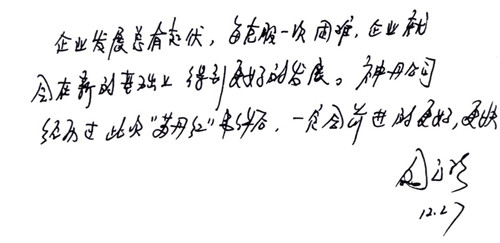 企业发展总有起伏，每克服一次困难，企业就
会在新的基础上得到更好的发展。神丹公司
经历过此次“苏丹红”事件后，一定会前进的更好，更快
12.27